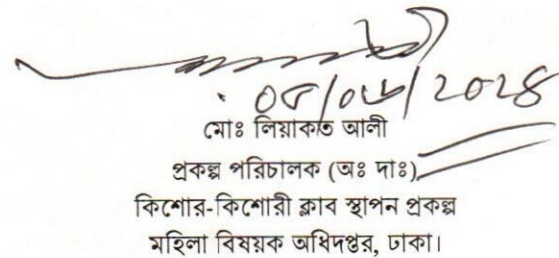 ০৫/০৬/২০২৪
মোঃ লিয়াকত আলী
প্রকল্প পরিচালক (অঃ দাঃ)
কিশোর-কিশোরী ক্লাব স্থাপন প্রকল্প
মহিলা বিষয়ক অধিদপ্তর, ঢাকা।